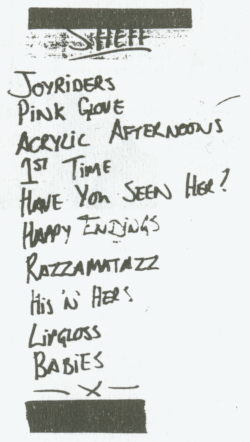 SHEFF
JOYRIDERS
PINK GLOVE
ACRYLIC AFTERNOONS
1ST TIME
HAVE YOU SEEN HER?
HAPPY ENDINGS
RAZZAMATAZZ
HIS 'N' HERS
LIPGLOSS
BABIES
— X —